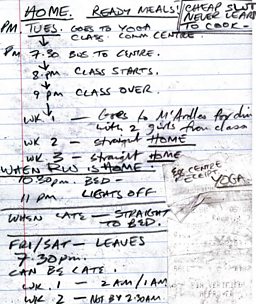 HOME. READY MEALS!
CHEAP SLUT
NEVER LEARN
TO COOK-
PM TUES. GOES TO YOGA
CLASS. COMM CENTRE.
PM 7.30 BUS TO CENTRE.
8 PM CLASS STARTS.
9 PM CLASS OVER.
WK 1 — Goes to M'Ardles for din
with 2 girls from class
WK 2 - straight HOME
WK 3 - straight HOME
WHEN RUN IS HOME:
10.30pm. BED
11 pm LIGHTS OFF
WHEN LATE — STRAIGHT
TO BED.
CENTRE
RECEIPT
YOGA
FRI/SAT — LEAVES
7.30pm.
CAN BE LATE!
WK. 1 - 2 AM/1AM
WK 2 - NOT BY 2.30AM